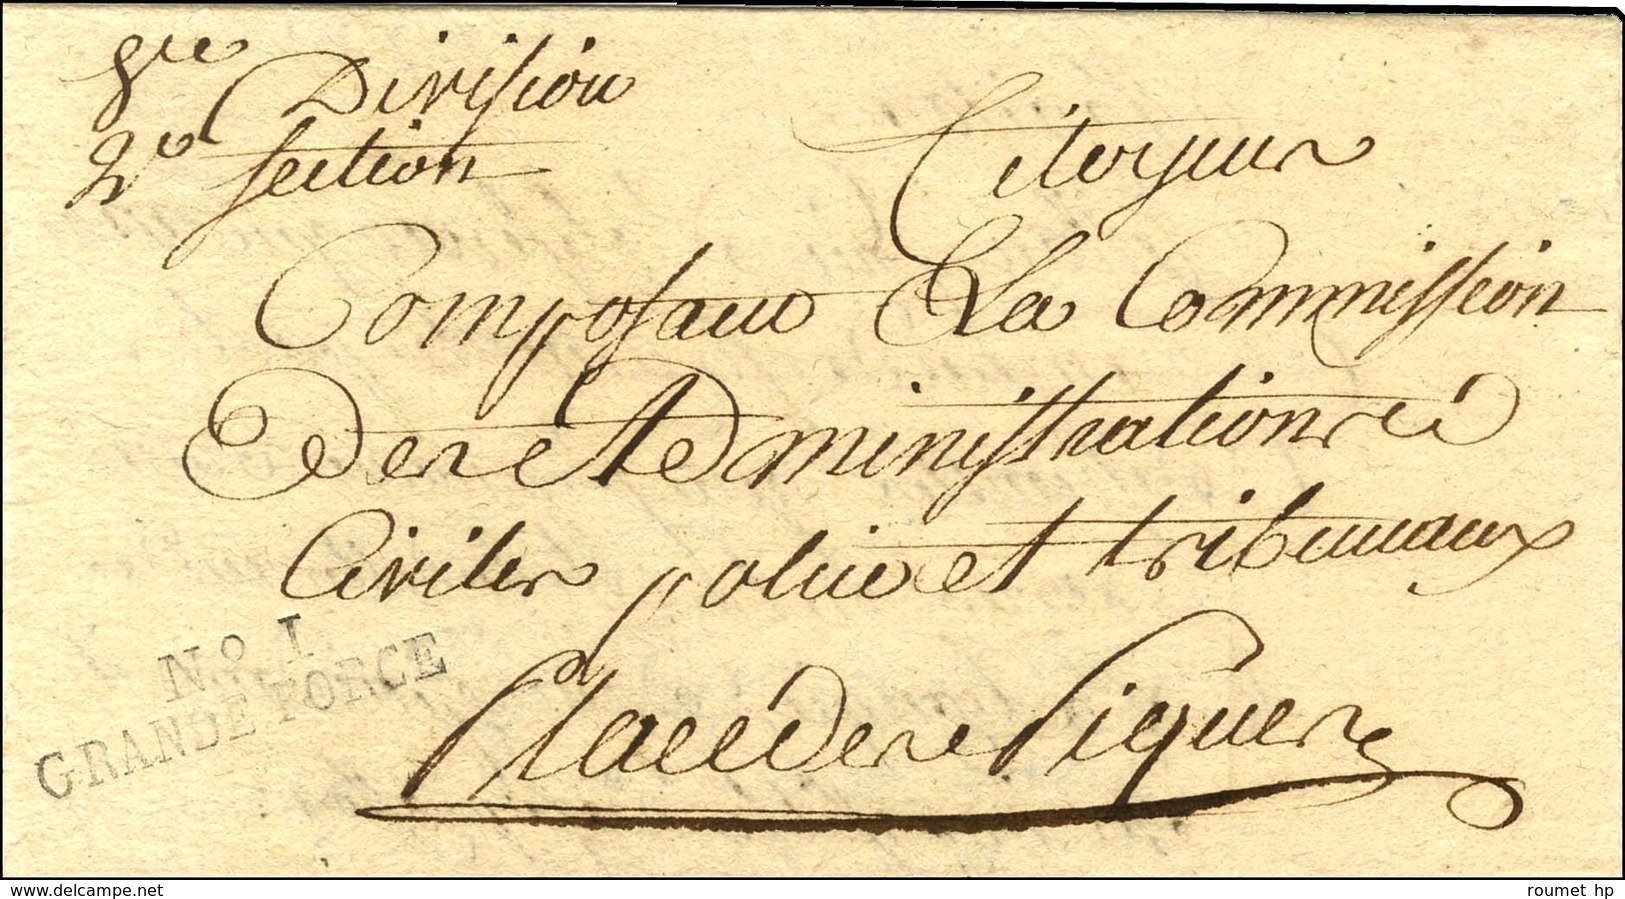 8re Division
2e Section
Citoyens
Composant La Commission
Des Administrations
Civiles police et tribunaux
Place Des Piques
No. I
GRANDE FORCE
www.delcampe.net
roumet hp